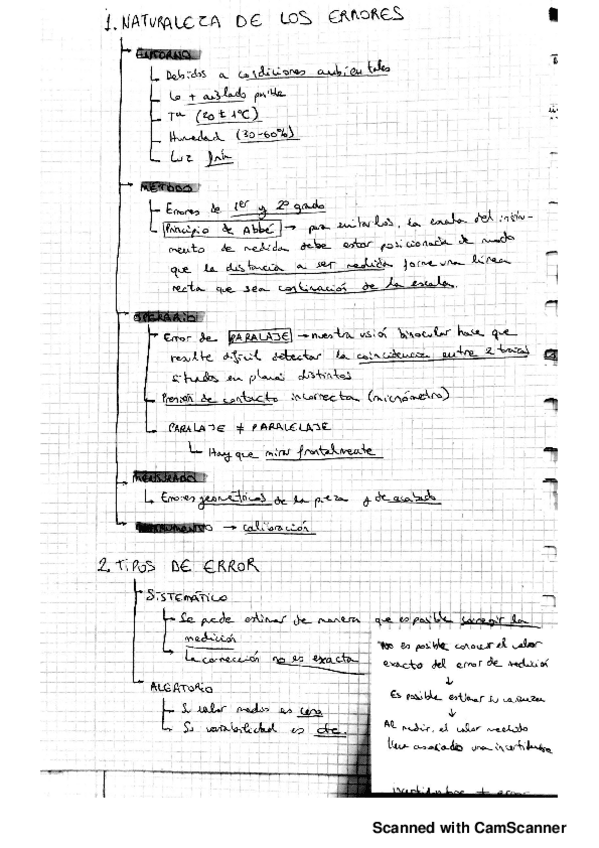 1. NATURALEZA DE LOS ERRORES
ENTORNO
Debidos a condiciones ambientales
Lo + aislado posible
Tª (20 ± 1ºC)
Humedad (30-60%)
Luz fría
MÉTODO
Errores de 1er y 2º grado
Principio de Abbé → para evitarlos, la escala del instru-
mento de medida debe estar posicionada de modo
que la distancia a ser medida forme una línea
recta que sea continuación de la escala.
OPERARIO
Error de PARALAJE → nuestra visión binocular hace que
resulte difícil detectar la coincidencia entre 2 trazos
situados en planos distintos
Presión de contacto incorrecta (micrómetro)
PARALAJE ≠ PARALELAJE
Hay que mirar frontalmente
MENSURADO
Errores geométricos de la pieza y de acabado
INSTRUMENTO → calibración
2. TIPOS DE ERROR
SISTEMÁTICO
Se puede estimar de manera que es posible corregir la
medición
La corrección no es exacta
ALEATORIO
Su valor medio es cero
Su variabilidad es cte.
No es posible conocer el valor
exacto del error de medición
↓
Es posible estimar su
↓
Al medir, el valor medido
lleva asociado una incertidumbre
incertidumbre ≠ error
Scanned with CamScanner